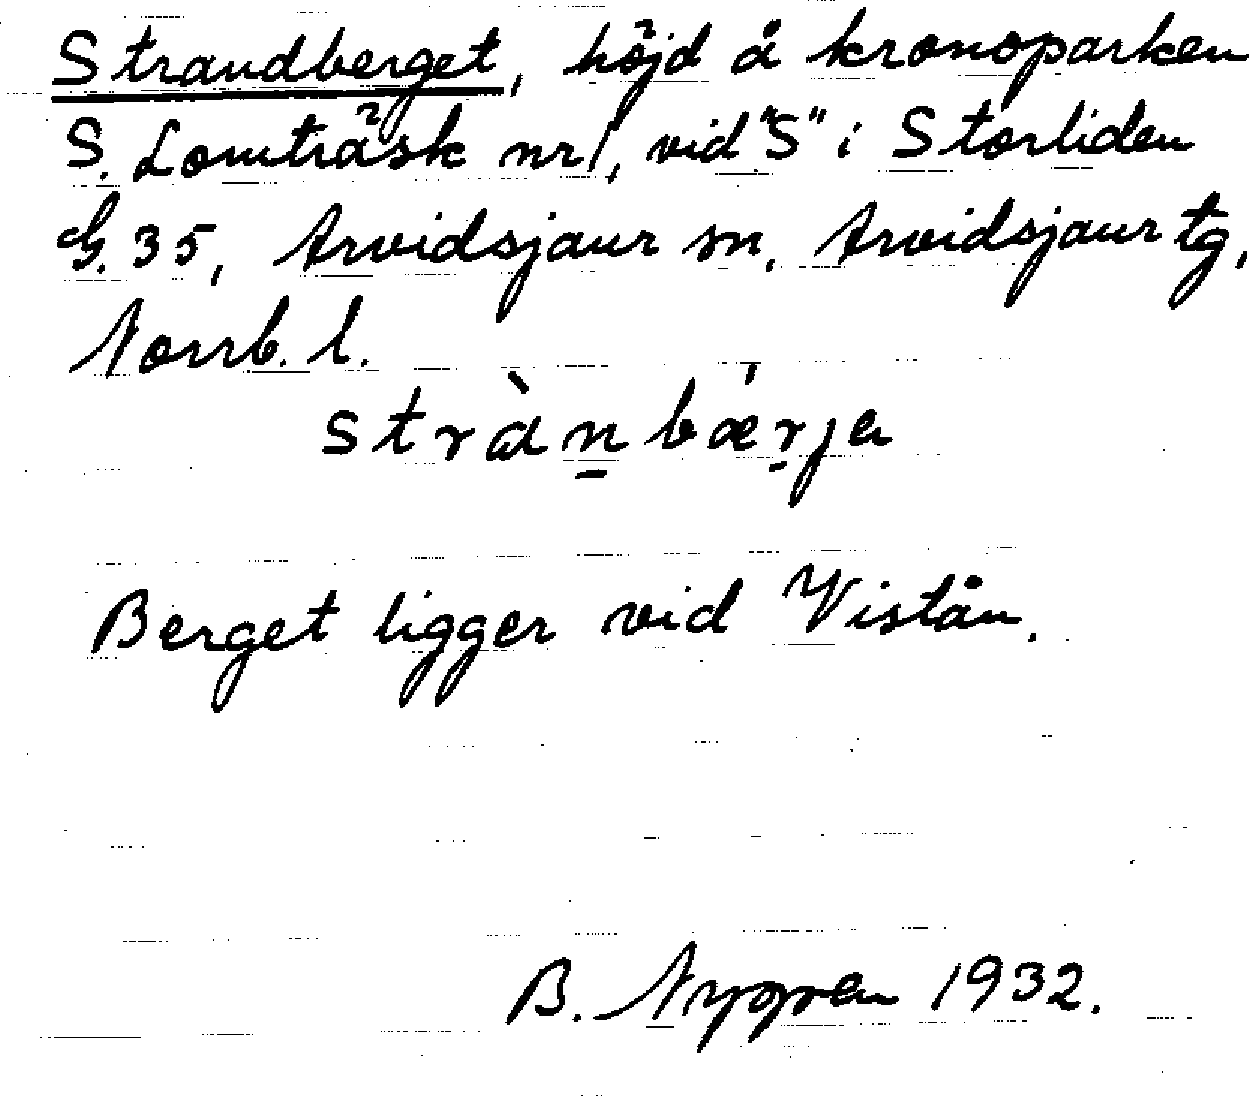 Strandberget, höjd å kronoparken
S. Lomträsk nr 1, vid "S" i Storliden
G. 35, Arvidsjaur sn, Arvidsjaur tg,
Norrb. l.
stràn̲bæ̍r̤ja
Berget ligger vid Vistån.
B. Nygren 1932.